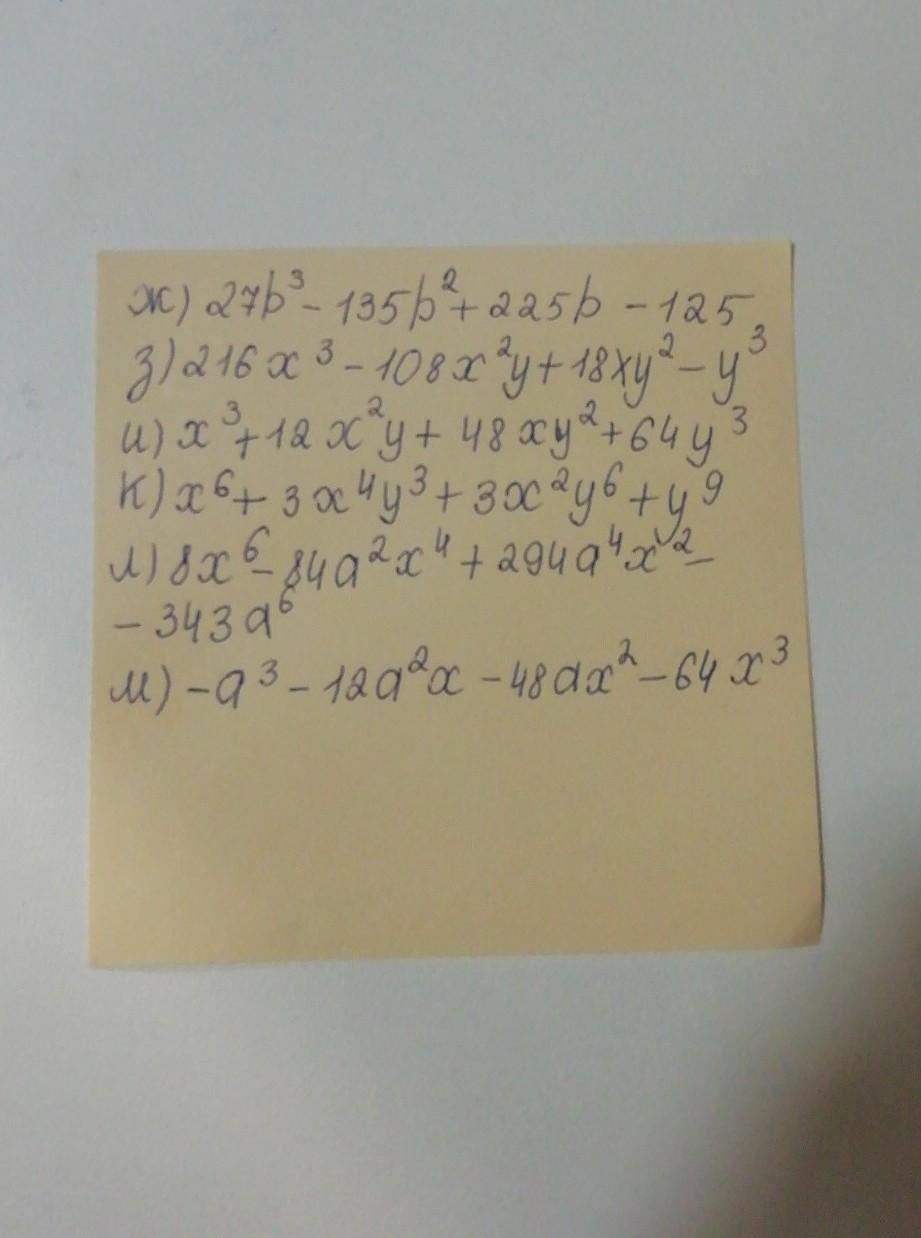 ж) 27b³ - 135b² + 225b - 125
з) 216x³ - 108x²y + 18xy² - y³
и) x³ + 12x²y + 48xy² + 64y³
к) x⁶ + 3x⁴y³ + 3x²y⁶ + y⁹
л) 8x⁶ - 84a²x⁴ + 294a⁴x² -
- 343a⁶
м) -a³ - 12a²x - 48ax² - 64x³